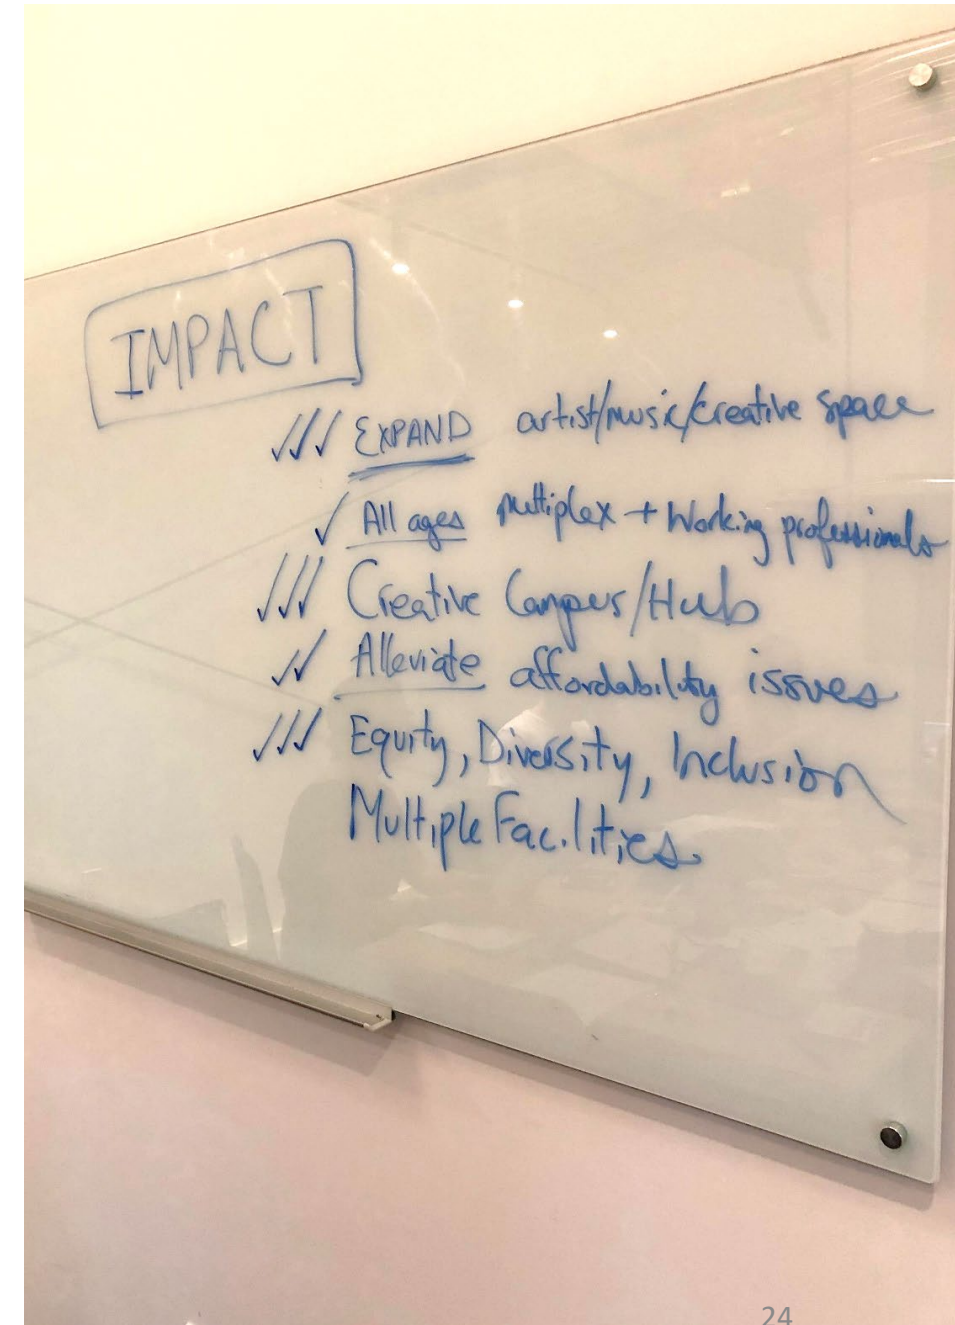 IMPACT
✓✓✓ EXPAND artist/music/creative space
✓ All ages multiplex + Working professionals
✓✓✓ Creative Campus/Hub
✓✓ Alleviate affordability issues
✓✓✓ Equity, Diversity, Inclusion
Multiple Facilities
24